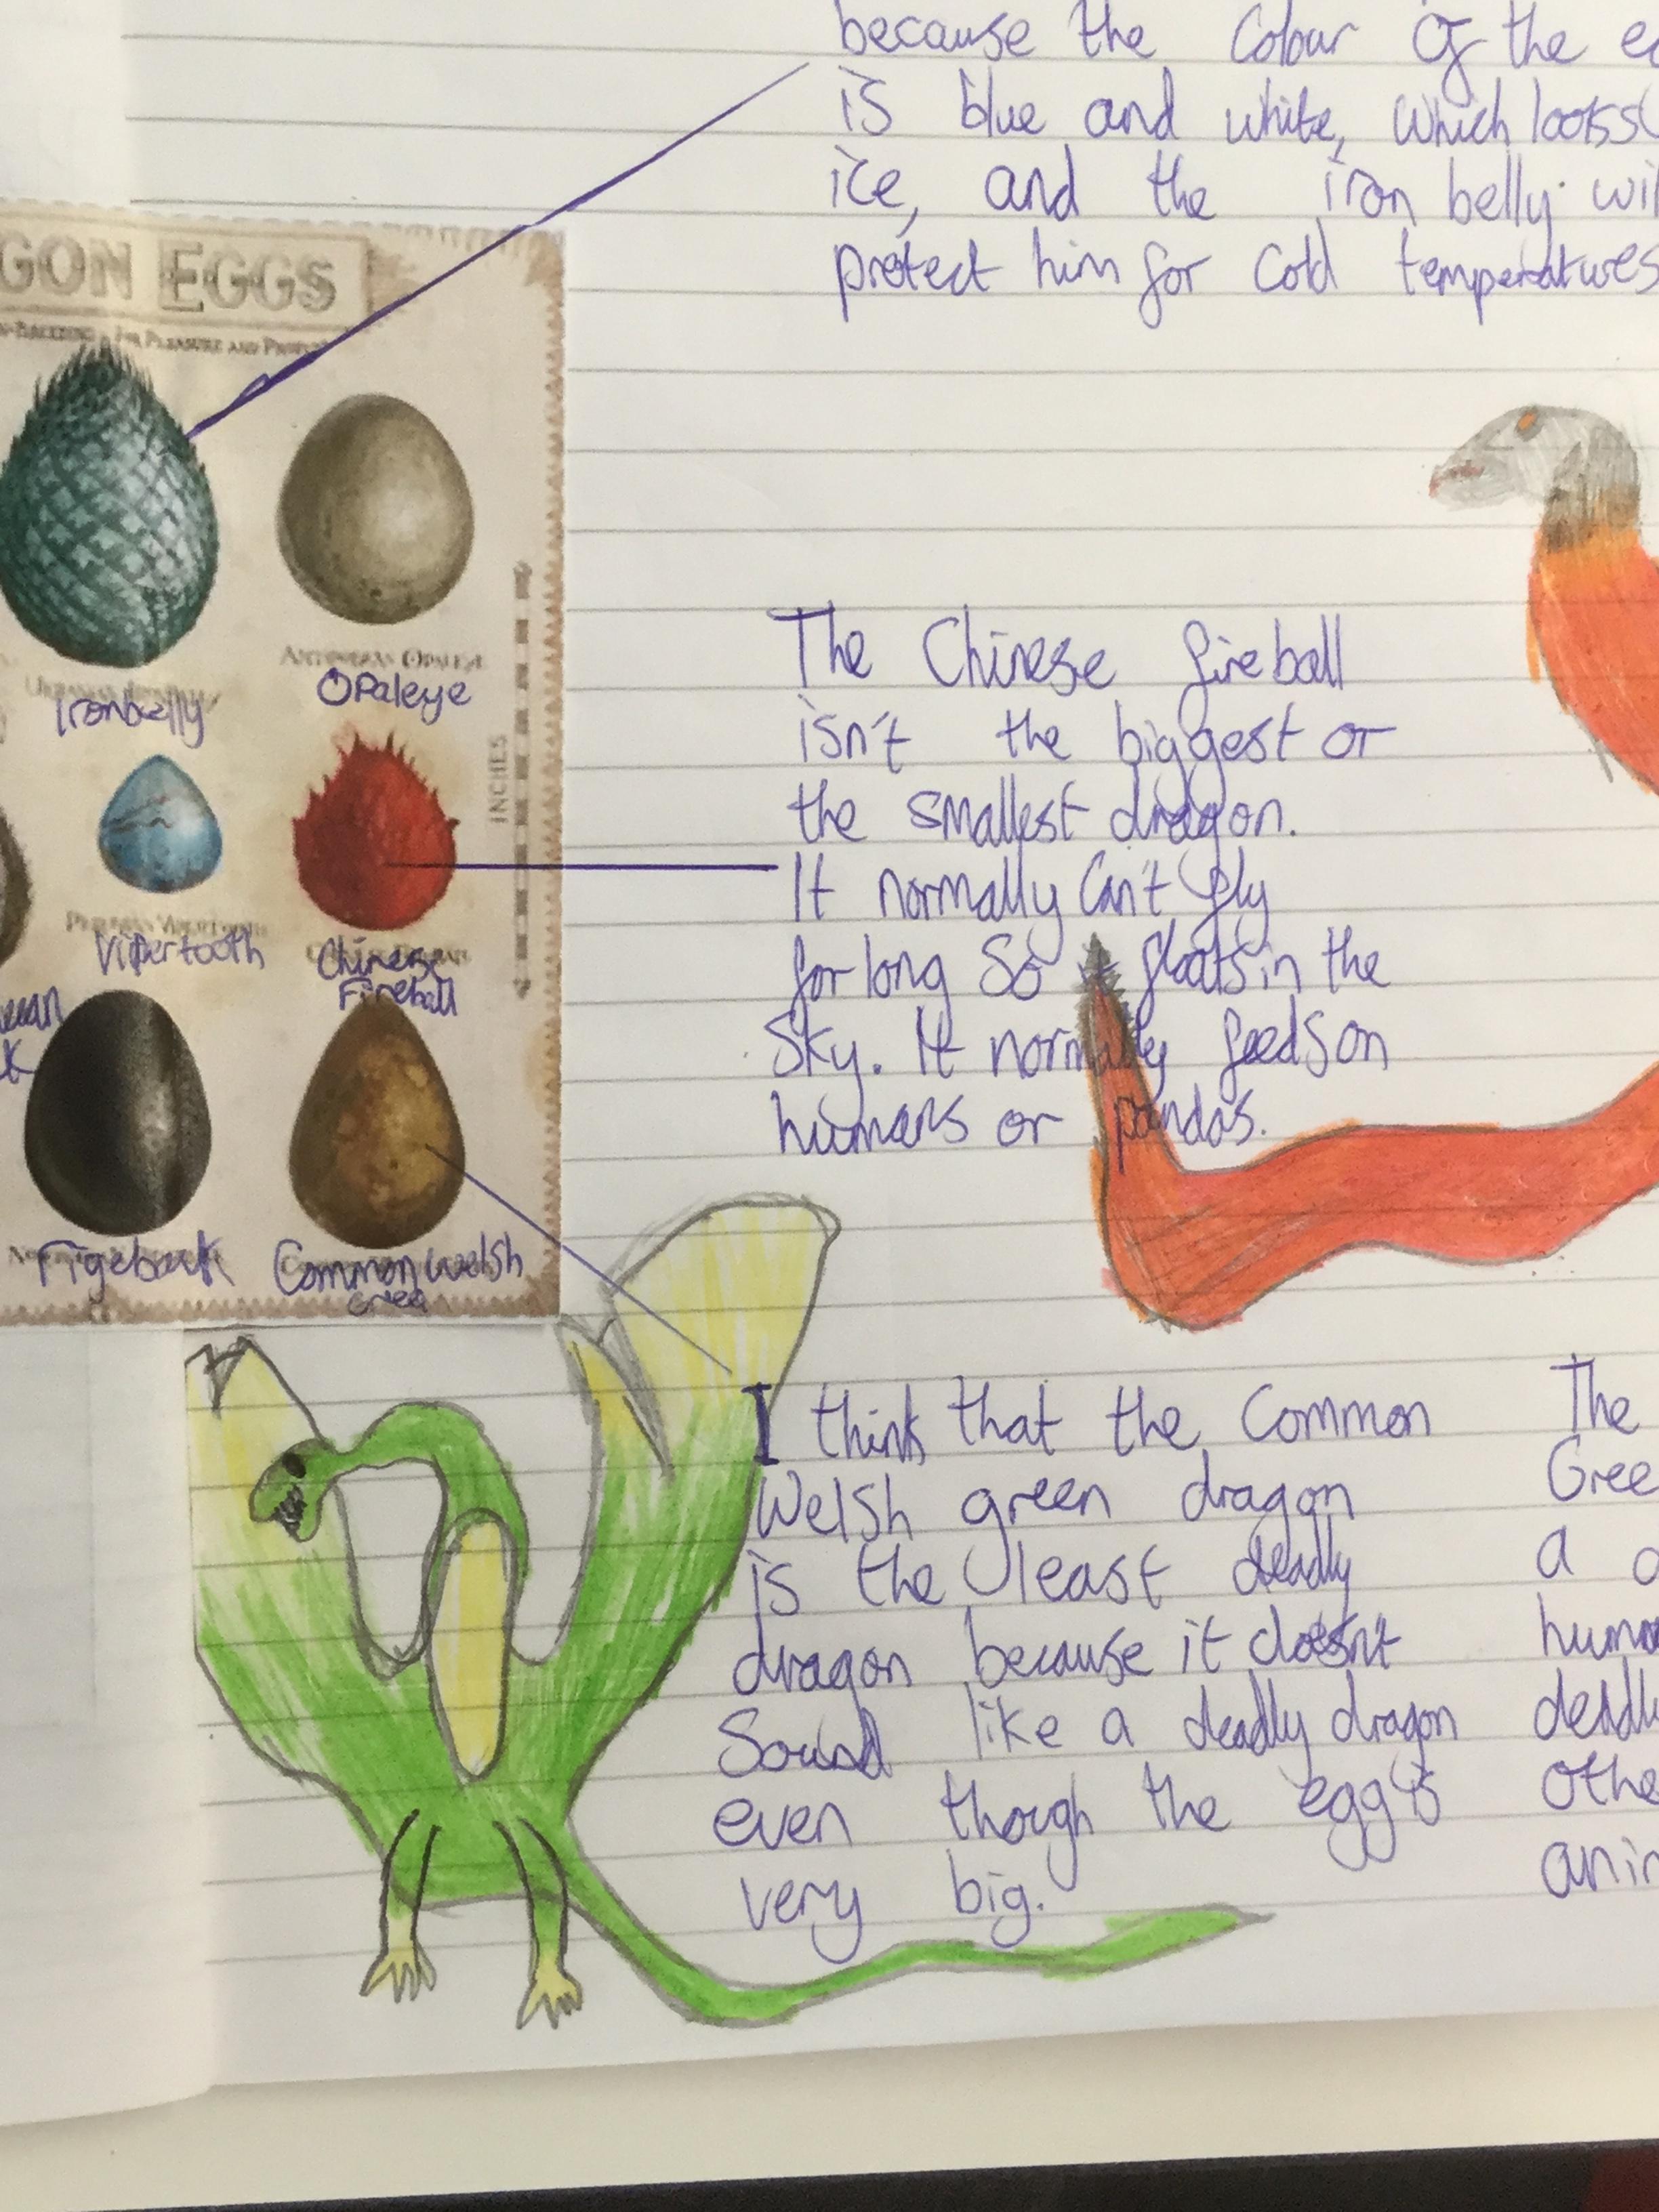 because the Colour Of the
is blue and white, Which looks
ice, and the iron belly
protect him for Cold temperatures
GON EGGS
FOR PLEASURE AND PROFIT
Ironbelly
OPaleye
INCHES
Vipertooth
Chinese
Fireball
Common welsh
The Chinese fireball
isn't the biggest or
the smallest dragon.
It normally Can't fly
for long So it floats in the
Sky. It normally feeds on
humans or pandas.
I think that the Common
Welsh green dragon
is the least deadly
dragon because it doesn't
Sound like a deadly dragon
even though the egg is
very big.
The
a